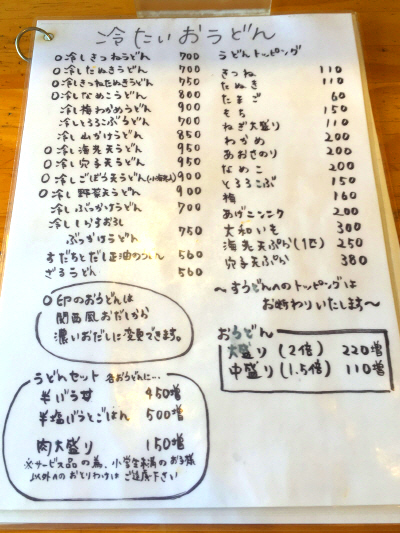 冷たいおうどん
○冷しきつねうどん 700
○冷したぬきうどん 700
○冷しきつねたぬきうどん 750
○冷しなめこうどん 800
冷し梅わかめうどん 900
冷しとろろこぶうどん 700
冷し山かけうどん 850
○冷し海老天うどん 950
○冷し穴子天うどん 950
○冷しごぼう天うどん(小海老入) 900
○冷し野菜天うどん 900
冷しぶっかけうどん 700
冷ししらすおろし
ぶっかけうどん 750
すだちとだし正油のうどん 560
ざるうどん 560
○印のおうどんは
関西風おだしから
濃いおだしに変更できます。
うどんセット 各おうどんに…
半ばら丼 450増
半塩ばらとごはん 500増
肉大盛り 150増
※サービス品の為、小学生未満のお子様
以外へのおとりわけはご遠慮下さい
うどんトッピング
きつね 110
たぬき 110
たまご 60
もち 150
ねぎ大盛り 110
わかめ 200
あおさのり 200
なめこ 200
とろろこぶ 150
梅 160
あげニンニク 200
大和いも 300
海老天ぷら(1匹) 250
穴子天ぷら 380
〜すうどんへのトッピングは
お断わりいたします〜
おうどん
大盛り(2倍) 220増
中盛り(1.5倍) 110増